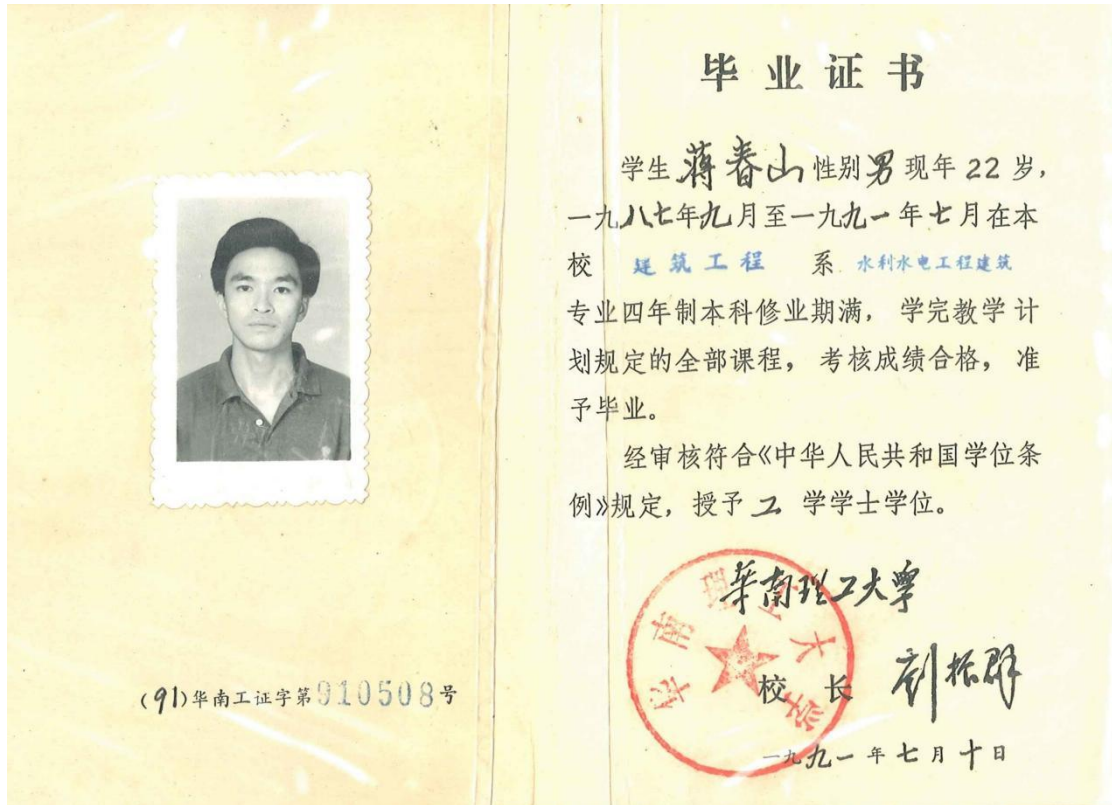 (91)华南工证字第910508号
毕业证书
学生蒋春山性别男现年22岁，
一九八七年九月至一九九一年七月在本
校 建筑工程 系 水利水电工程建筑
专业四年制本科修业期满，学完教学计
划规定的全部课程，考核成绩合格，准
予毕业。
经审核符合《中华人民共和国学位条
例》规定，授予工学学士学位。
华南理工大学
华南理工大学
校长 刘振群
一九九一年七月十日